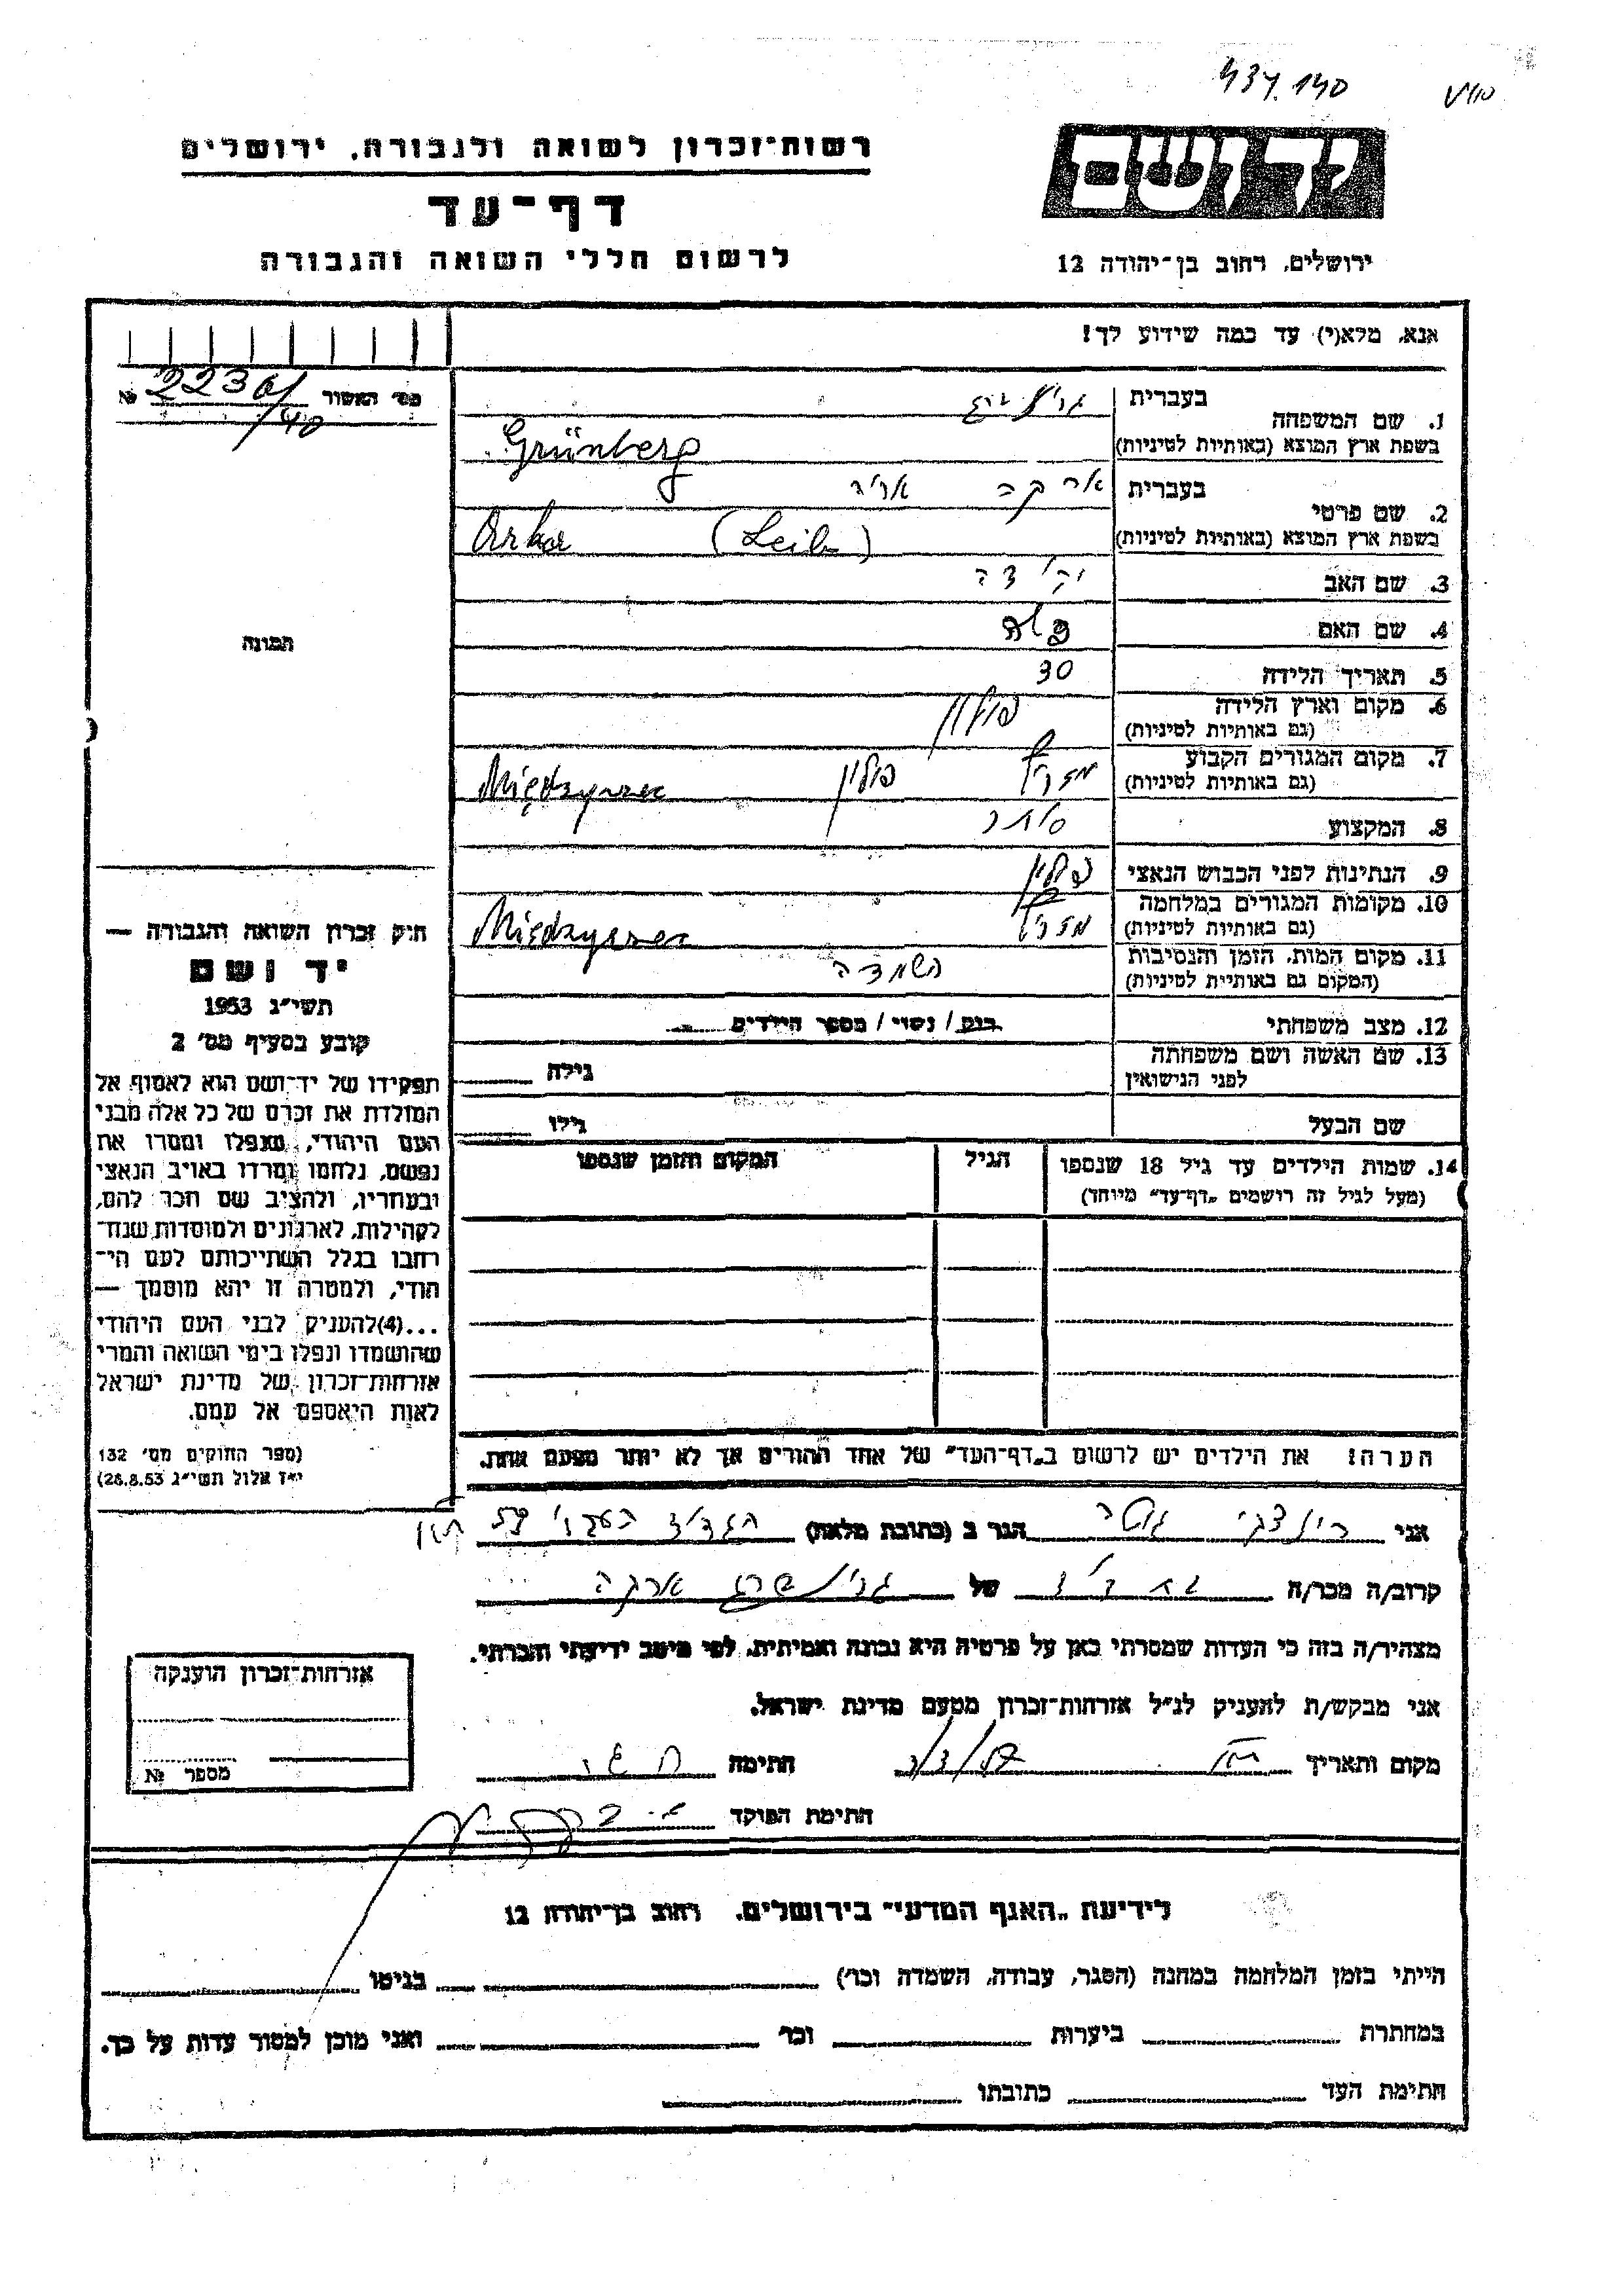 434.140
רשות־זכרון לשואה ולגבורה, ירושלים
יד ושם
דף־עד
לרשום חללי השואה והגבורה
ירושלים, רחוב בן־יהודה 12
אנא, מלא(י) עד כמה שידוע לך!
מס׳ האשור 2236/40 №
1. שם המשפחה
בעברית
בשפת ארץ המוצא (באותיות לטיניות) Grünberg
2. שם פרטי
בעברית ארקה
בשפת ארץ המוצא (באותיות לטיניות) Arka (Leib)
3. שם האב יהודה
4. שם האם
5. תאריך הלידה 30
6. מקום וארץ הלידה פולין
(גם באותיות לטיניות)
7. מקום המגורים הקבוע
(גם באותיות לטיניות) פולין Międzyrzec
8. המקצוע סוחר
9. הנתינות לפני הכבוש הנאצי פולין
10. מקומות המגורים במלחמה
(גם באותיות לטיניות) Międzyrzec
11. מקום המות, הזמן והנסיבות השמדה
(המקום גם באותיות לטיניות)
12. מצב משפחתי רוק / נשוי / מספר הילדים
13. שם האשה ושם משפחתה
לפני הנישואין גילה
שם הבעל גילו
14. שמות הילדים עד גיל 18 שנספו הגיל המקום והזמן שנספו
(מעל לגיל זה רושמים „דף־עד״ מיוחד)
הערה: את הילדים יש לרשום ב„דף־העד״ של אחד ההורים אך לא יותר מפעם אחת.
תמונה
חוק זכרון השואה והגבורה —
יד ושם
תשי״ג 1953
קובע בסעיף מס׳ 2
תפקידו של יד־ושם הוא לאסוף אל
המולדת את זכרם של כל אלה מבני
העם היהודי, שנפלו ומסרו את
נפשם, נלחמו ומרדו באויב הנאצי
ובעוזריו, ולהציב שם וזכר להם,
לקהילות, לארגונים ולמוסדות שנח־
רבו בגלל השתייכותם לעם הי־
הודי, ולמטרה זו יהא מוסמך —
...(4)להעניק לבני העם היהודי
שהושמדו ונפלו בימי השואה והמרי
אזרחות־זכרון של מדינת ישראל
לאות היאספם אל עמם.
(ספר החוקים מס׳ 132
י״ז אלול תשי״ג 28.8.53)
אני הגר ב (כתובת מלאה)
קרוב/ה מכר/ה בת דוד של גרינברג ארקה
מצהיר/ה בזה כי העדות שמסרתי כאן על פרטיה היא נכונה ואמיתית, לפי מיטב ידיעתי והכרתי.
אני מבקש/ת להעניק לנ״ל אזרחות־זכרון מטעם מדינת ישראל.
מקום ותאריך חתימה
חתימת הפוקד
אזרחות־זכרון הוענקה
מספר №
לידיעת „האגף המדעי״ בירושלים, רחוב בן־יהודה 12
הייתי בזמן המלחמה במחנה (הסגר, עבודה, השמדה וכו׳) בגיטו
במחתרת ביערות וכו׳ ואני מוכן למסור עדות על כך.
חתימת העד כתובתו